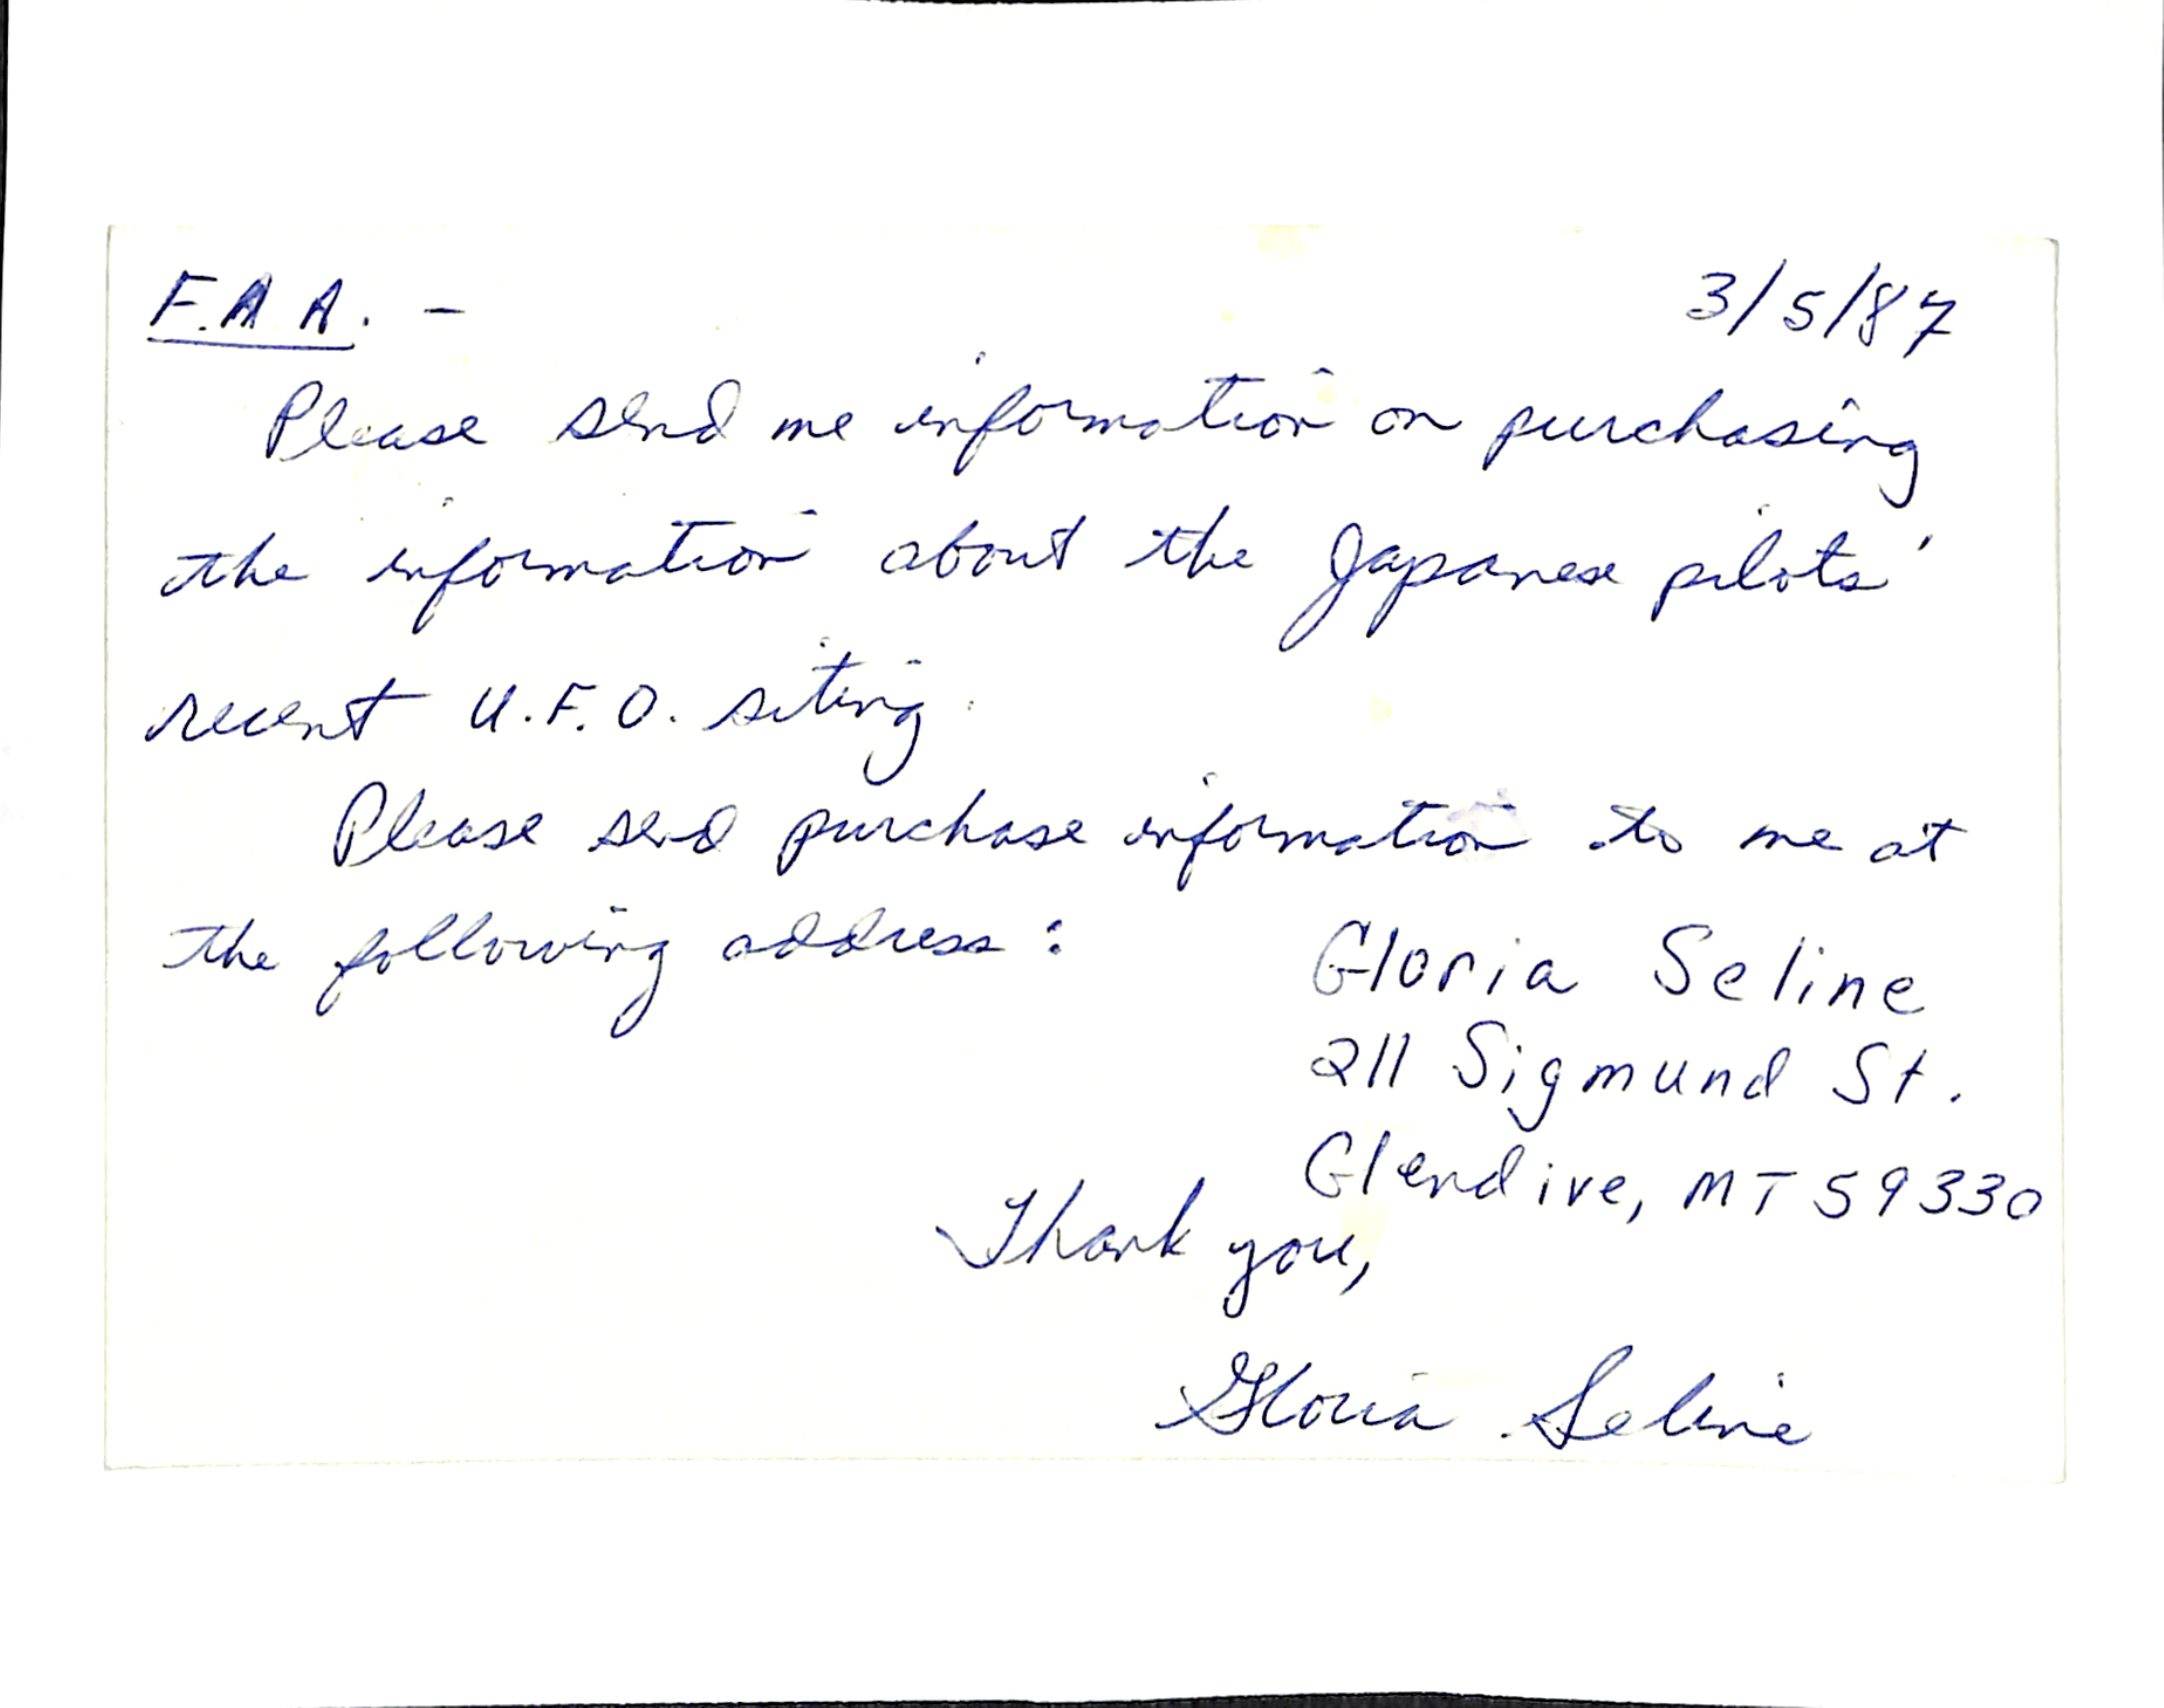 F.A A. - 3/5/87
Please send me information on purchasing
the information about the Japanese pilots'
recent U.F.O. siting.
Please send purchase information to me at
the following address:
Gloria Seline
211 Sigmund St.
Glendive, MT 59330
Thank you,
Gloria Seline